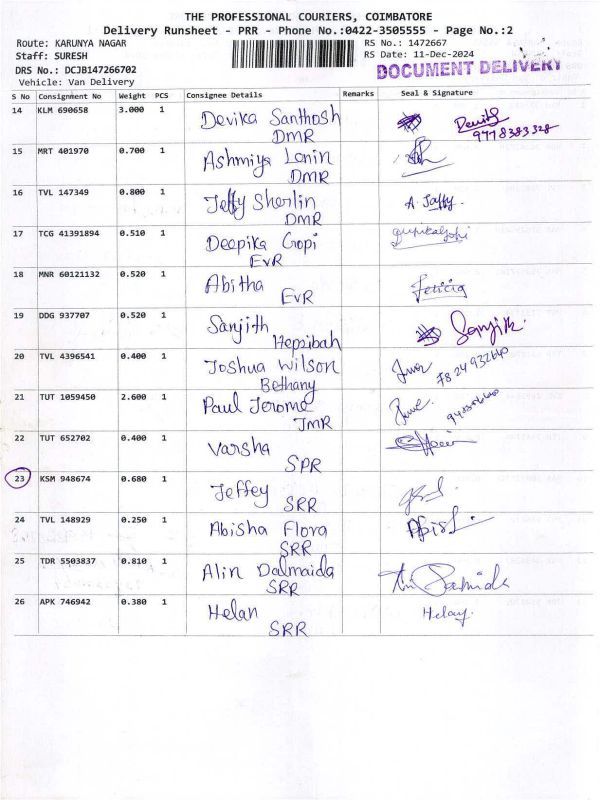 THE PROFESSIONAL COURIERS, COIMBATORE
Delivery Runsheet - PRR - Phone No.:0422-3505555 - Page No.:2
Route: KARUNYA NAGAR RS No.: 1472667
Staff: SURESH RS Date: 11-Dec-2024
DRS No.: DCJB147266702 DOCUMENT DELIVERY
Vehicle: Van Delivery
S No Consignment No Weight PCS Consignee Details Remarks Seal & Signature
14 KLM 690658 3.000 1 Devika Santhosh
DMR 9778383328
15 MRT 401970 0.700 1 Ashmiya Lenin
DMR
16 TVL 147349 0.800 1 Jeffy Sherlin A. Jaffy.
DMR
17 TCG 41391894 0.510 1 Deepika Gopi
EVR
18 MNR 60121132 0.520 1 Abitha
EVR
19 DDG 937707 0.520 1 Sanjith Sanjith.
Hepzibah
20 TVL 4396541 0.400 1 Joshua Wilson
Bethany
21 TUT 1059450 2.600 1 Paul Jerome
JMR
22 TUT 652702 0.400 1 Varsha
SPR
23 KSM 948674 0.680 1 Jeffey
SRR
24 TVL 148929 0.250 1 Abisha Flora
SRR
25 TDR 5503837 0.810 1 Alin Dalmaida
SRR
26 APK 746942 0.380 1 Helan
SRR